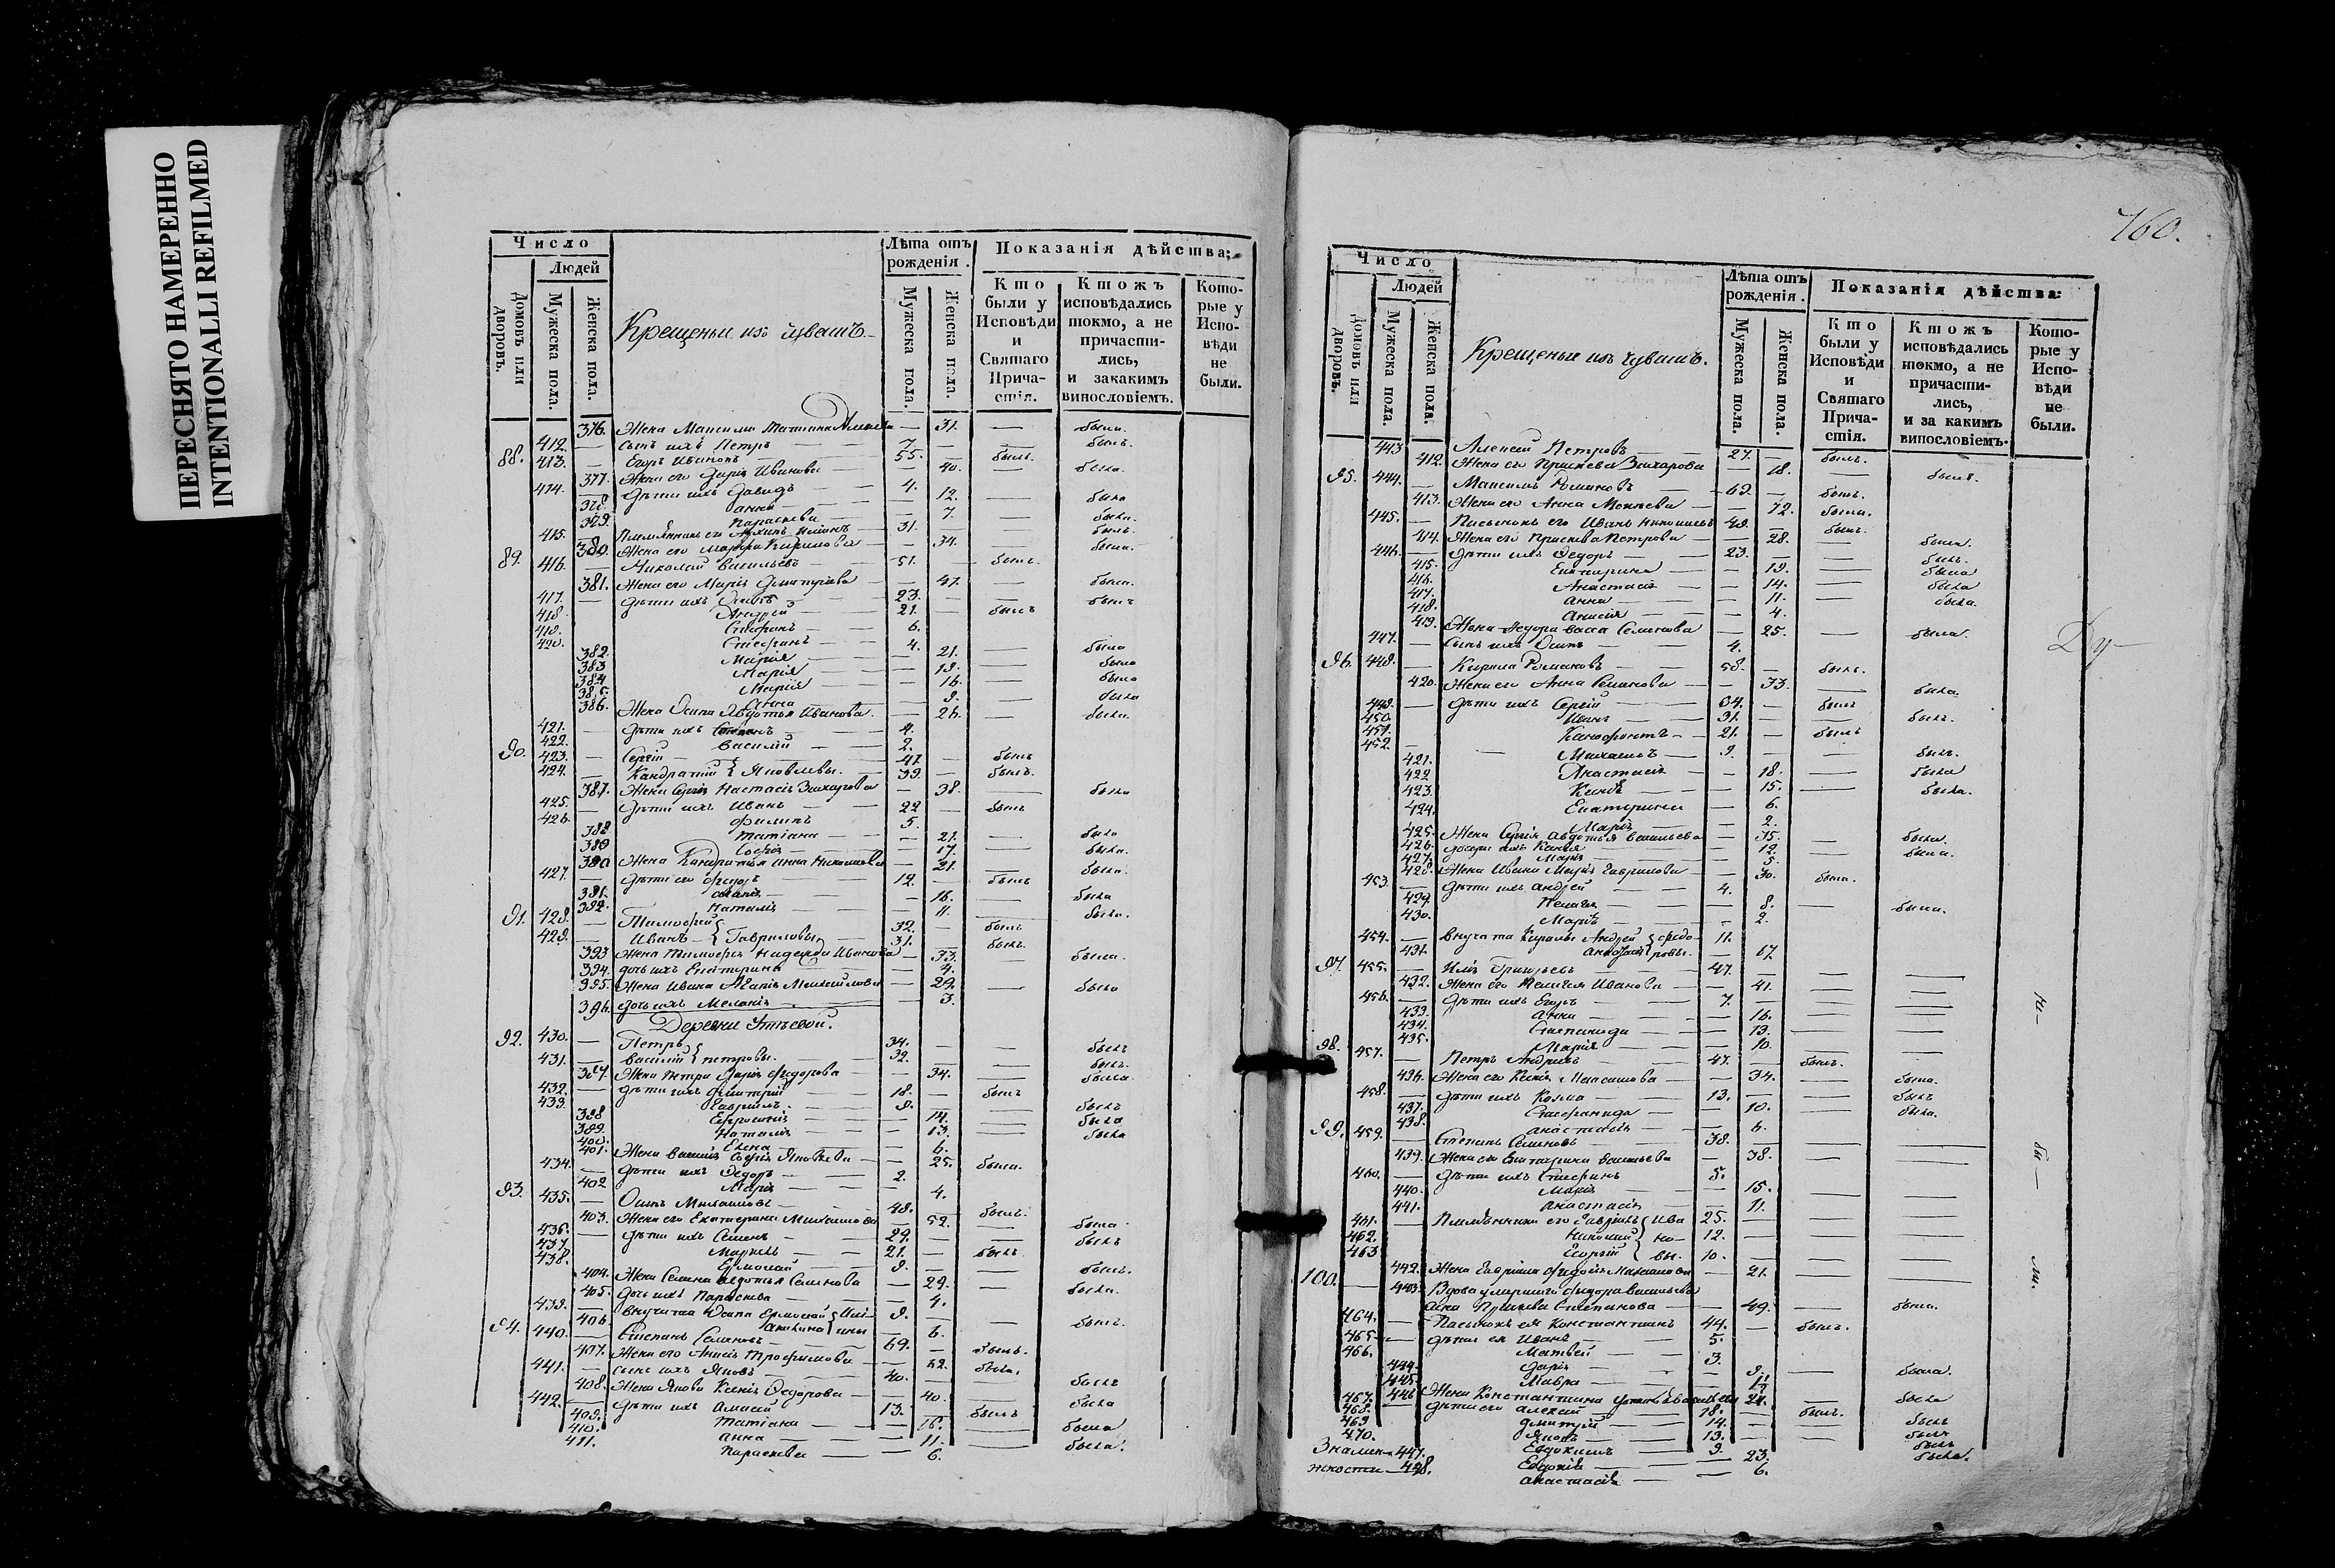 ПЕРЕСНЯТО НАМЕРЕННО
INTENTIONALLI REFILMED
Число
Людей
Домовъ или дворовъ.
Мужеска пола.
Женска пола.
Крещеныи изъ чувашъ.
Лѣта отъ рожденія.
Мужеска пола.
Женска пола.
Показанія дѣйства:
Кто были у Исповѣди и Святаго Причастія.
Ктожъ исповѣдались токмо, а не причастились, и закакимъ винословіемъ.
Которые у Исповѣди не были.
376. Жена Максима Татіана — 31. — была.
412. — Сынъ ихъ Петръ — 7. — былъ.
88. 413. — Егоръ Ивановъ 55. — былъ.
377. Жена его Дарія Иванова — 40. — была.
414. — Дѣти ихъ Давидъ — 4.
378. Анна — 12. — была
379. Параскева — 7. — была.
415. — Племянникъ его 31. — былъ.
380. Жена его Марфа Кирилова — 34. — была.
89. 416. — Николай Васильевъ — 51. — былъ.
381. Жена его Марія Дмитріева — 47. — была.
417. — Дѣти ихъ Осипъ — 23. — былъ
418 Андрей — 21. — былъ
419. Стефанъ — 6.
420. Стефанъ — 4.
382. Марія — 21. — была
383 Марія — 19. — была
384 Марія — 16. — была
385. Анна — 9. — была
386. Жена Осипа Авдотья Иванова. — 26. — была.
421. — Дѣти ихъ 4.
422. Василій — 2.
90. 423. — Сергій — 47. — былъ
424. — Кандратій } Яковлевы. — 39. — былъ.
387. Жена Сергія Настасія Захарова — 38. — была
425. — Дѣти ихъ Иванъ — 22 — былъ
426. Филипъ 5.
388 Татіана — 21. — была
389 Софія — 17. — была.
390 Жена Кандратья Анна Николаева — 21. — была.
427. — Дѣти его Федоръ 12. — былъ
391. 16. — была
392. Наталія — 11. — была.
91. 428. — Тимофей
429. — Иванъ } Гавриловы 32. — былъ
31. — былъ.
393 Жена Тимофея Надежда Иванова — 33. — была.
394. дочь ихъ Екатерина — 4.
395. Жена Ивана Агапія Михайлова — 29. — была
396. дочь ихъ Меланія — 3.
Деревни
92. 430. — Петръ 34. — былъ
431. — Василій } Петровы. 32. — былъ.
397. Жена Петра Дарія Федорова — 34. — была
432. — Дѣти ихъ Дмитрій — 18. — былъ
433. Гаврилъ. — 9. — былъ
398 Ефросинія — 14. — была
399. Наталія — 13. — была
400. Елена — 6.
401. Жена Василія Софія Яковлева — 25. — была.
434. — Дѣти ихъ Федоръ — 2.
402 Марія — 4.
93. 435. — Осипъ Михайловъ — 48. — былъ.
403. Жена его Екатерина Михайлова — 52. — была
436. — Дѣти ихъ Семенъ — 29. — былъ
437. Маркелъ — 21. — былъ
438. Ермолай — 9. — былъ.
404. Жена Семена Авдотья Семенова — 29. — была.
405. Дочь ихъ Параскева — 4.
439. — Внучата Осипа Ермолай 9. — былъ.
406. Акилина — 6.
94. 440. — Степанъ Семеновъ — 69. — былъ.
407. Жена его Анисія Трофимова — 62. — была.
441. — Сынъ ихъ Яковъ — 40. — былъ
408. Жена Якова Ксенія Федорова — 40. — была
442. — Дѣти ихъ Алексей 13. — былъ
409. Татіана — 16. — была
410. Анна — 11. — была.
411. Параскева — 6.
160.
Число
Людей
Домовъ или дворовъ.
Мужеска пола.
Женска пола.
Крещеныи изъ чувашъ.
Лѣта отъ рожденія.
Мужеска пола.
Женска пола.
Показанія дѣйства:
Кто были у Исповѣди и Святаго Причастія.
Ктожъ исповѣдались токмо, а не причастились, и за какимъ винословіемъ.
Которые у Исповѣди не были.
443 Алексей Петровъ — 27. — былъ.
412. Жена его Праскева Захарова — 18. — была.
95. 444. — Максимъ Романовъ — 69. — былъ.
413. Жена его Анна Матвеева — 72. — была.
445. — Пасынокъ его Иванъ Николаевъ 49. — былъ.
414. Жена его Праскева Петрова — 28. — была.
446. — Дѣти ихъ Федоръ — 23. — былъ.
415. Екатерина — 19. — была
416. Анастасія — 14. — была
417. Анна — 11. — была.
418. Анисія — 4.
419. Жена Федора Васса Семенова — 25. — была.
447. — Сынъ ихъ Осипъ — 4.
96. 448. — Кирила Романовъ — 58. — былъ.
420. Жена его Анна Романова — 33. — была.
449. — Дѣти ихъ Сергій — 34. — былъ
450. Иванъ — 31. — былъ.
451. Ксенофонтъ — 21. — былъ
452. — Михаилъ — 9. — былъ.
421. Анастасія — 18. — была
422 15. — была.
423. Екатерина — 6.
424. Марія — 2.
425. Жена Сергія Авдотья Васильева — 35. — была.
426. дочери ихъ Ксенія 12. — была.
427. Марія — 5.
428. Жена Ивана Марія Гаврилова — 30. — была.
453. — Дѣти ихъ Андрей — 4.
429. Пелагія — 8. — была.
430. Марія — 2.
454. — Внучата Кирилы Андрей } Федо- 11.
431. ровы. — 17.
97. 455. — Илія Григорьевъ — 47. —
432. Жена его Пелагія Иванова — 41. —
456. — Дѣти ихъ Егоръ — 7. —
433. Анна — 16. —
434. Степанида — 13. —
435. Марія — 10. —
98. 457. — Петръ Андреевъ — 47. — былъ.
436. Жена его Ксенія Максимова — 34. — была.
458. — Дѣти ихъ Козма — 13. — былъ
437. Стефанида — 10. — была.
438. Анастасія — 6.
99. 459. — Степанъ Семеновъ — 38. —
439. Жена его Екатерина Васильева — 38. —
460. — Дѣти ихъ Стефанъ 5.
440. Марія — 15. —
441. Анастасія — 11. —
461. — Племянники его Гаврилъ } Ива 25. —
462. Николай } но- 12. —
463 Георгій } вы. 10. —
442. Жена Гаврила Федосія Михайлова — 21. —
100. — 443. Вдова умершаго Федора Васильева
Праскева Степанова — 49. — была.
464. — Пасынокъ ея Константинъ 44. — былъ.
465. — Дѣти ея Иванъ — 5.
466. Матвей — 3.
444. Дарія — 9. — была.
445. Мавра —
446 Жена Константина 24. — была
467. — Дѣти его Алексей — 18. — былъ.
468. Дмитрій — 14. — былъ
469 Яковъ — 13. — былъ
470. Евдокимъ — 9. — былъ
447. Евдокія — 23. — была.
448. Анастасія — 6.
Ду-
не-
бы-
ли.